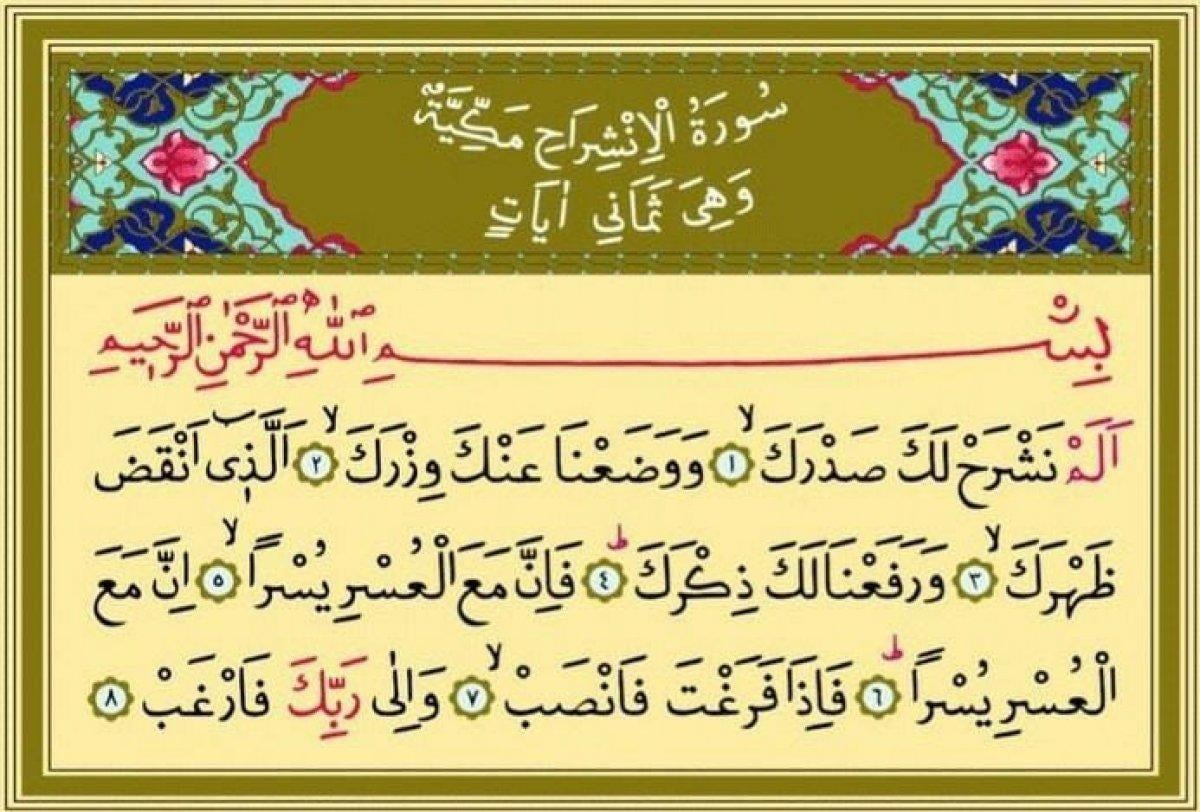 سُورَةُ الْاِنْشِرَاحِ مَكِّيَّةٌ
وَهِيَ ثَمَانِي اٰيَاتٍ
بِسْمِ اللّٰهِ الرَّحْمٰنِ الرَّحٖيمِ
اَلَمْ نَشْرَحْ لَكَ صَدْرَكَۙ ﴿١﴾ وَوَضَعْنَا عَنْكَ وِزْرَكَۙ ﴿٢﴾ اَلَّذٖٓى اَنْقَضَ
ظَهْرَكَۙ ﴿٣﴾ وَرَفَعْنَا لَكَ ذِكْرَكَؕ ﴿٤﴾ فَاِنَّ مَعَ الْعُسْرِ يُسْرًاۙ ﴿٥﴾ اِنَّ مَعَ
الْعُسْرِ يُسْرًاؕ ﴿٦﴾ فَاِذَا فَرَغْتَ فَانْصَبْۙ ﴿٧﴾ وَاِلٰى رَبِّكَ فَارْغَبْ ﴿٨﴾